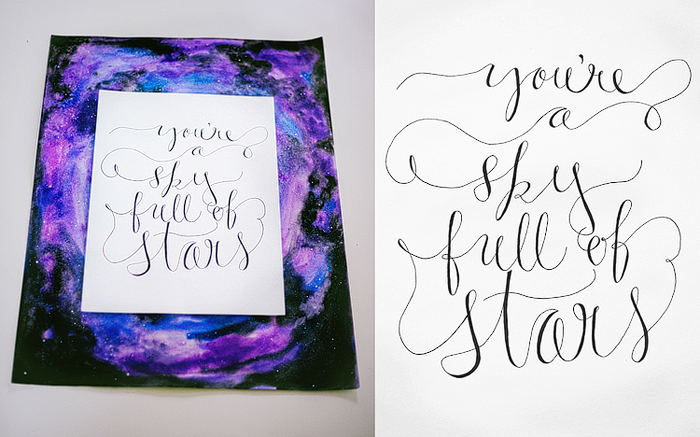 you're
a
sky
full of
stars
you're
a
sky
full of
stars